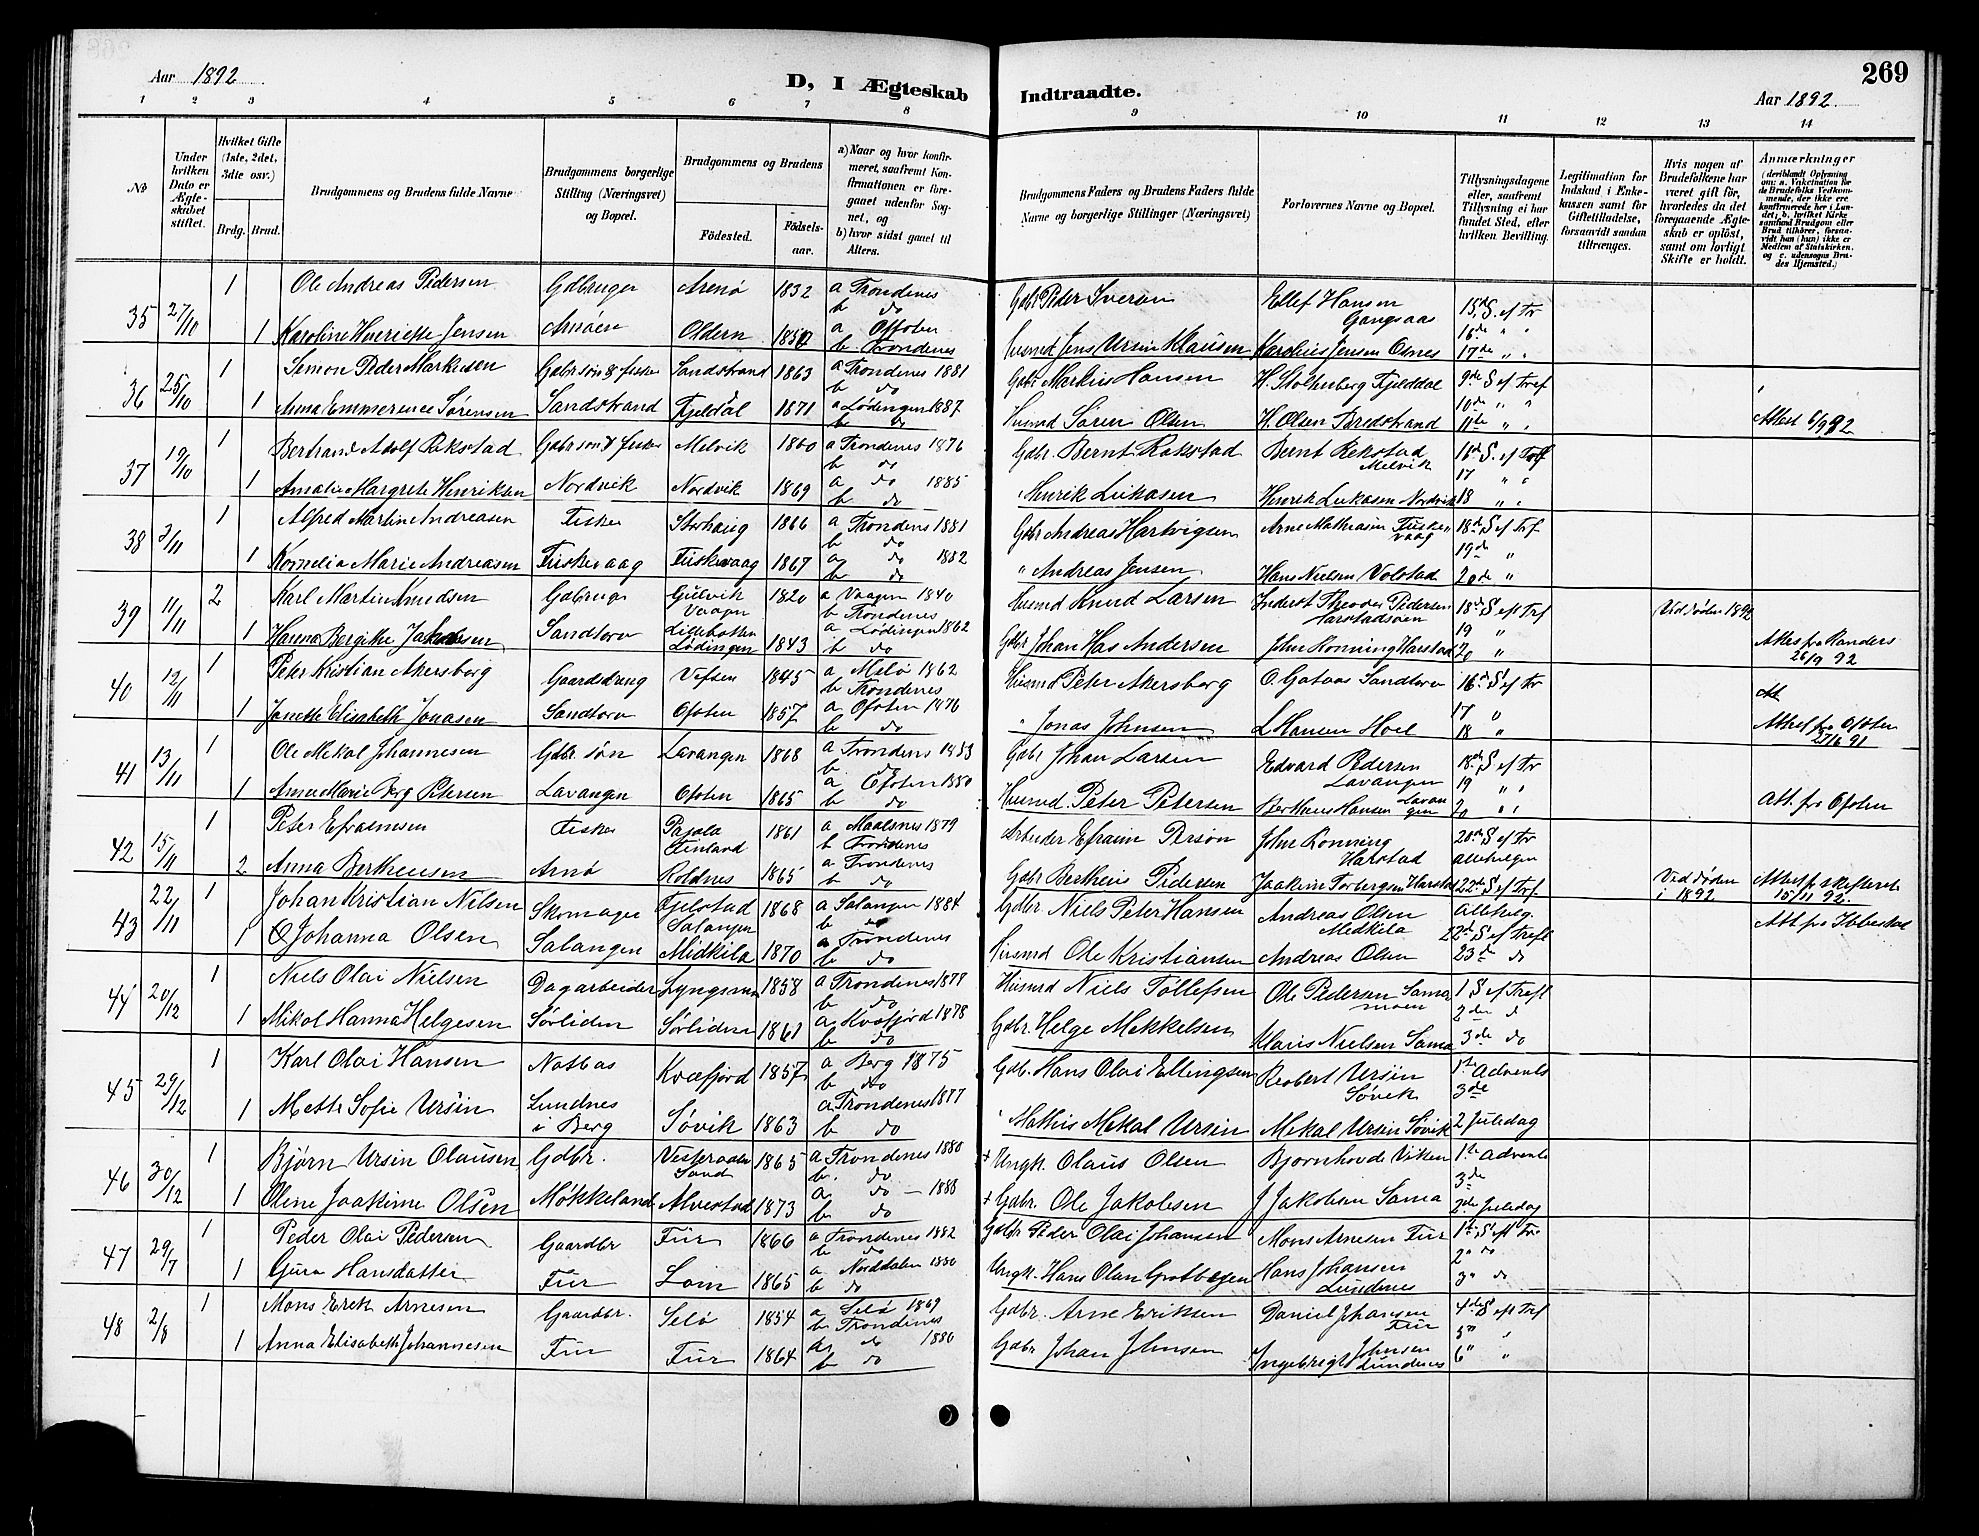 269
Aar 1892
D, I Ægteskab Indtraadte.
Aar 1892
1 2 3 4 5 6 7 8 9 10 11 12 13 14
No
Under hvilken Dato er Ægteskabet stiftet.
Hvilket Gifte (1ste, 2det, 3die osv.)
Brdg. Brud.
Brudgommens og Brudens fulde Navne
Brudgommens borgerlige Stilling (Næringsvei) og Bopæl.
Brudgommens og Brudens
Fødested.
Fødselsaar.
a) Naar og hvor konfirmeret, saafremt Konfirmationen er foregaaet udenfor Sognet, og
b) hvor sidst gaaet til Alters.
Brudgommens Faders og Brudens Faders fulde Navne og borgerlige Stillinger (Næringsvei)
Forlovernes Navne og Bopæl.
Tillysningsdagene eller, saafremt Tillysning ei har fundet Sted, efter hvilken Bevilling.
Legitimation for Indskud i Enkekassen samt for Giftetilladelse, forsaavidt saadan tiltrænges.
Hvis nogen af Brudefolkene har været gift før, hvorledes da det foregaaende Ægteskab er opløst, samt om lovligt Skifte er holdt.
Anmærkninger (deriblandt Oplysning om: a. Vakcination for de Brudefolks Vedkommende, der ikke ere konfirmerede her i Landet; b. hvilket Kirkesamfund Brudgom eller Brud tilhører, forsaavidt han (hun) ikke er Medlem af Statskirken, og c. udensogns Brudes Hjemsted.)
35 27/10 1 Ole Andreas Pedersen Gdbruger Arnø 1832 a Trondenes b do Gdbr Peder Iversen Ellef Hansen Gangsaas 15de S. ef Tr
1 Karoline Henriette Jensen Arnøen Oldern a Ofoten b. Trondenes Husmd Jens Ursin Klausen Karolius Jensen Osnes 16de 17de
36 25/10 1 Simon Peder Markusen Gdbrsøn & fisker Sandstrand 1863 a Trondenes 1881 b do Gdbr Markus Hansen H. Stoltenberg Fjelddal 9de S ef Tref
1 Anna Emmerence Sørensen Sandstrand Fjeldal 1871 a Lødingen 1887 b do Husmd Søren Olsen H. Olsen Bredstrand 10de 11te Attest 6/9 92
37 19/10 1 Bertrand Adolf Rekstad Gdbrsøn & fisker Melvik 1860 a Trondenes 1876 b do Gdbr. Bernt Rekstad Bernt Rekstad Melvik 16de S. ef Tref
1 Amalie Margrete Henriksen Nordvik Nordvik 1869 a do 1885 b do Henrik Lukasen Henrik Lukasen Nordvik 17 18
38 3/11 1 Alfred Martin Andreasen Fisker Storhaug 1866 a Trondenes 1881 b do Gdbr Andreas Hartvigsen Arne Mathiasen Fuskevaag 18de S ef Tref
1 Kornelia Marie Andreasen Fuskevaag Fuskevaag 1867 a do 1882 b do " Andreas Jensen Hans Nielsen Volstad 19de 20de
39 11/11 2 Karl Martin Knudsen Gdbruger Gulvik Vaagen 1820 a Vaagen 1840 b Trondenes Husmd Knud Larsen Inderst Theodor Pedersen Harstadsøen 18de S eft Tref Ved Døden 1892
1 Hanna Bergithe Sandtorv Lillebotten Lødingen 1843 a Lødingen 1862 b do Gdbr Johan Has Andersen John Rønning Harstad 19 20 26/9 92
40 12/11 1 Peter Kristian Akersborg Gaardsdreng Vefsen 1845 a Melø 1862 b Trondenes Husmd Peter Akersborg O. Gataas Sandtorv 16de S ef Tr
1 Janette Elisabeth Jonasen Sandtorv Ofoten 1857 a Ofoten 1876 b do " Jonas Johnsen L Hansen Hoel 17 18 Attest fra Ofoten
41 13/11 1 Ole Mekal Johannesen Gdbr søn Lavangen 1868 a Trondenes 1883 b do Gdbr Johan Larsen Edvard Pedersen Lavangen 18de S ef Tr
1 Anne Marie Berg Petersen Lavangen Ofoten 1865 a Ofoten 1880 b do Husmd Peter Petersen Bertheus Hansen Lavangen 19 20 Att. fra Ofoten
42 15/11 1 Peter Efraimsen Fisker Pajala Finland 1861 a Maalsnes 1879 b Trondenes Arbeider Efraim Persøn John Rønning Harstad 20de S ef Tr allehelgen
2 Anna Bertheusen Arnø Roldnes 1865 a Trondenes b do Gdbr Bertheus Pedersen Joakim Torbergsen Harstad 22de S ef Tref Ved Døden i 1892. Attest fr skifteret 15/11 92.
43 22/11 1 Johan Kristian Nilsen Skomager Fjelstad Salangen 1868 a Salangen 1884 b do Gdbr Niels Peter Hansen Andreas Olsen Medkila Allehelg. 22de S ef Trefl Att. fra Ibbestad
1 Johanna Olsen Salangen Midkila 1870 a Trondenes b do Husmd Ole Kristiansen Andreas Olsen 23de do
44 20/12 1 Niels Olai Nielsen Dagarbeider 1858 a Trondenes 1877 b do Husmd Niels Tollefsen Ole Pedersen Samamoen 1 S ef Trefl
1 Mikol Hanna Helgesen Sørliden Sørliden 1861 a Kvæfjord 1878 b do Gdbr. Helge Mekkelsen Klaus Nielsen Sama 2den 3de do
45 29/12 1 Karl Olai Hansen Notbas Kvæfjord 1857 a Berg 1875 b do Gdb. Hans Olai Ellingsen Robert Ursin Søvik 1ste Advents 3de
1 Mette Sofie Ursin Lundnes i Berg Søvik 1863 a Trondenes 1877 b do Mathis Mekal Ursin Mekal Ursin Søvik 2 Juledag
46 30/12 1 Bjørn Ursin Olausen Gdbr. Vesteraalen Sand 1865 a Trondenes 1880 b. do + Ungk. Olaus Olsen Bjornhovde Viken 1ste Advents 3de
1 Oline Joakime Olsen Møkkeland Alvestad 1873 a do - 1888 b do + Gdbr. Ole Jakobsen J Jakobsen Sama 2den Juledag
47 29/7 1 Peder Olai Pedersen Gaardbr Fur 1866 a Trondenes 1882 b do Gdbr Peder Olai Johansen Mons Arnesen Fur 1ste S eft Tre
1 Gura Hansdatter Fur Lom 1865 a Norddalen 1880 b do Ungk. Hans Olan Grotbegen Hans Johansen Lundenes 2" do 3" do
48 2/8 1 Mons Erek Arnesen Gaardbr. Selø 1854 a Selø 1869 b Trondenes Gdbr. Arne Eriksen Daniel Johansen Fur 4de S eft Tref
1 Anna Elisabeth Johannesen Fur Fur 1864 a do 1880 b do Gdbr Johan Johnsen Ingebrigt Johnsen Lundenes 5" 6"